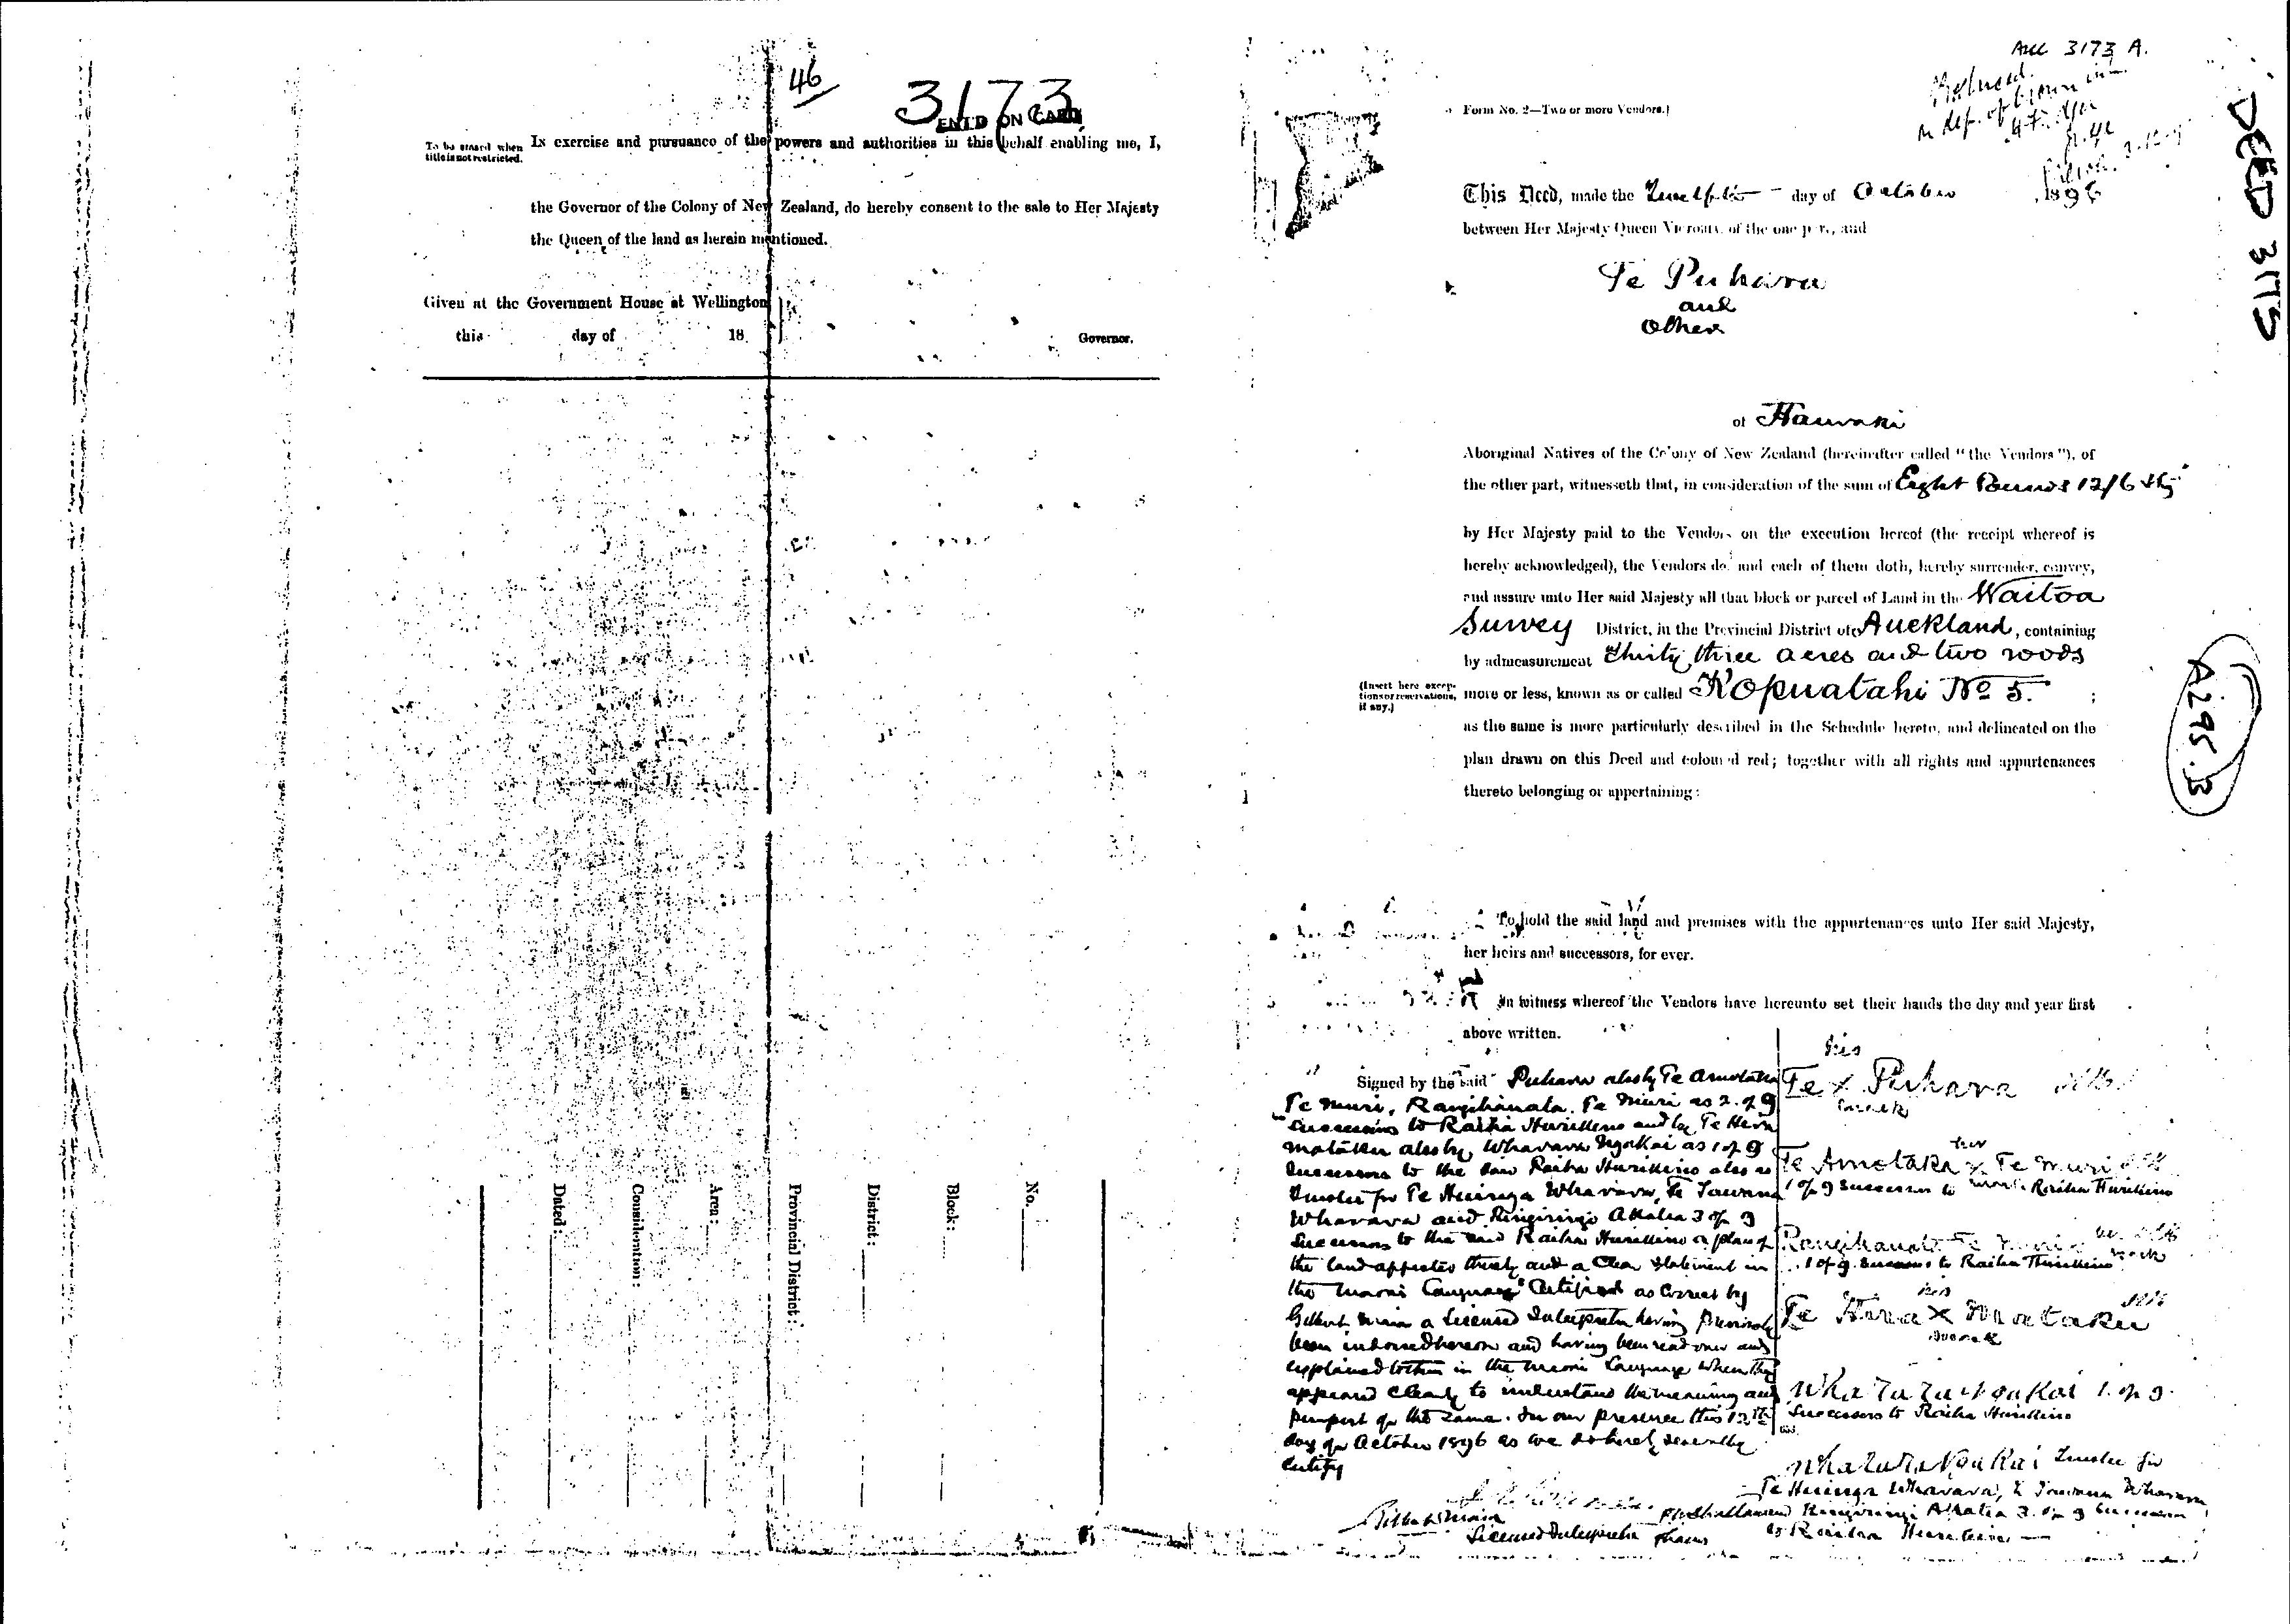 46
3173
ENT'D ON CARD
To be erased when
title is not restricted.
IN exercise and pursuance of the powers and authorities in this behalf enabling me, I,
the Governor of the Colony of New Zealand, do hereby consent to the sale to Her Majesty
the Queen of the land as herein mentioned.
Given at the Government House at Wellington
this day of 18 .
Governor.
Dated:
Consideration:
Area:
Provincial District:
District:
Block:
No.
Acc 3173 A.
Form No. 2—Two or more Vendors.]
This Deed, made the Twelfth day of October 1896
between Her Majesty Queen Victoria, of the one part, and
Te Puhara
and
Others
of Hauraki
Aboriginal Natives of the Colony of New Zealand (hereinafter called "the Vendors"), of
the other part, witnesseth that, in consideration of the sum of Eight Pounds 12/6 Stg
by Her Majesty paid to the Vendors on the execution hereof (the receipt whereof is
hereby acknowledged), the Vendors do, and each of them doth, hereby surrender, convey,
and assure unto Her said Majesty all that block or parcel of Land in the Waitoa
Survey District, in the Provincial District of Auckland, containing
by admeasurement Thirty three acres and two roods
(Insert here excep-
tions or reservations,
if any.)
more or less, known as or called Kopuatahi No 5. ;
as the same is more particularly described in the Schedule hereto, and delineated on the
plan drawn on this Deed and coloured red; together with all rights and appurtenances
thereto belonging or appertaining:
To hold the said land and premises with the appurtenances unto Her said Majesty,
her heirs and successors, for ever.
In witness whereof the Vendors have hereunto set their hands the day and year first
above written.
Signed by the said Puhara also by Te Amotaka
Te Muri, Rangihanata Te Muri as 2 of 9
Successors to Raiha Hurikino and by Te Hira
Mataku also by Wharara Ngakai as 1 of 9
Successors to the said Raiha Hurikino also as
Trustee for Te Huinga Wharara, Te Tawana
Wharara and Ringiringi Akatia 3 of 9
Successors to the said Raiha Hurikino a plan of
the land affected thereby and a clear statement in
the Maori Language certified as correct by
Gilbert Mair a Licensed Interpreter having previously
been indorsed hereon and having been read over and
explained to them in the Maori Language when they
appeared clearly to understand the meaning and
purport of the same. In our presence this 12th
day of October 1896 as we do hereby severally
certify
Gilbert Mair
Licensed Interpreter Thames
his
Te x Puhara
mark
her
Te Amotaka x Te Muri
1 of 9 Successors to mark Raiha Hurikino
Rangihanata Te Muri
mark
1 of 9 Successors to Raiha Hurikino
his
Te Hira x Mataku
mark
Wharara Ngakai 1 of 9
Successors to Raiha Hurikino
Wharara Ngakai Trustee for
Te Huinga Wharara, Te Tawana Wharara
Ringiringi Akatia 3 of 9 Successors
to Raiha Hurikino
DEED 3173
A295.B